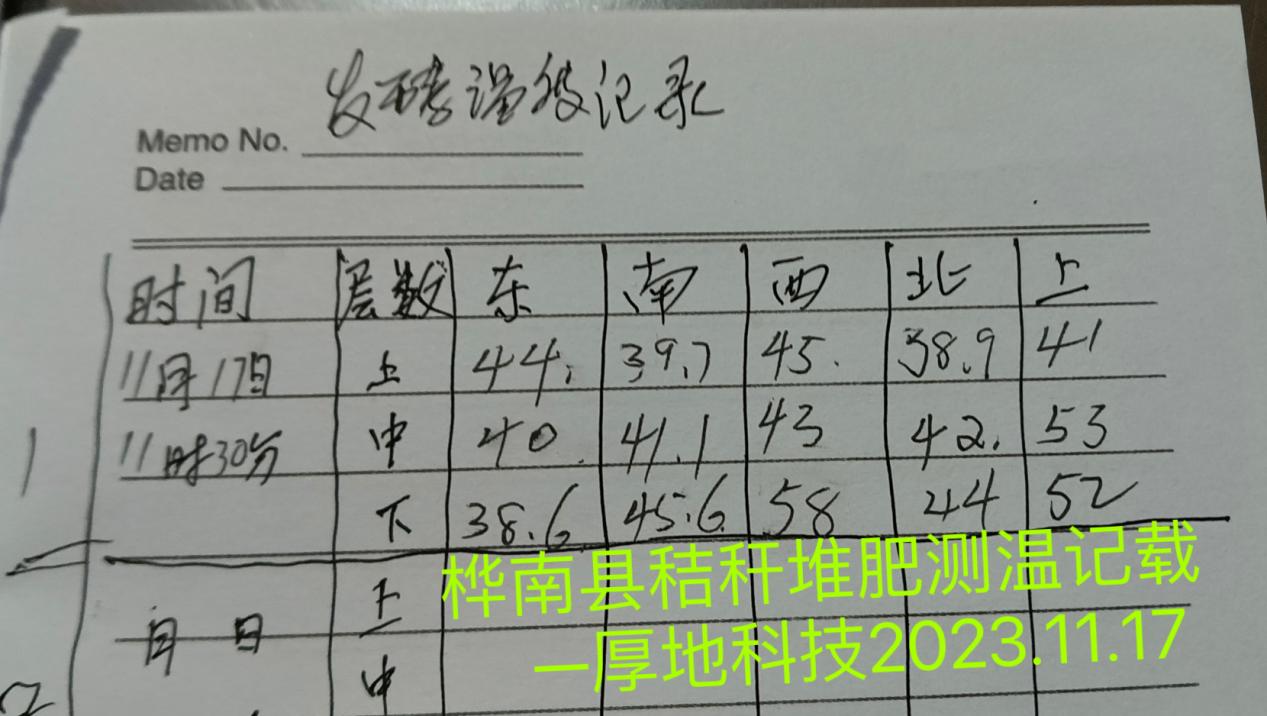 发酵温度记录
Memo No.
Date
时间 层数 东 南 西 北 上
11月17日 上 44. 39.7 45. 38.9 41
1 11时30分 中 40. 41.1 43 42. 53
下 38.6 45.6 58 44 52
桦南县秸秆堆肥测温记载
月 日 上
一厚地科技2023.11.17
2 中